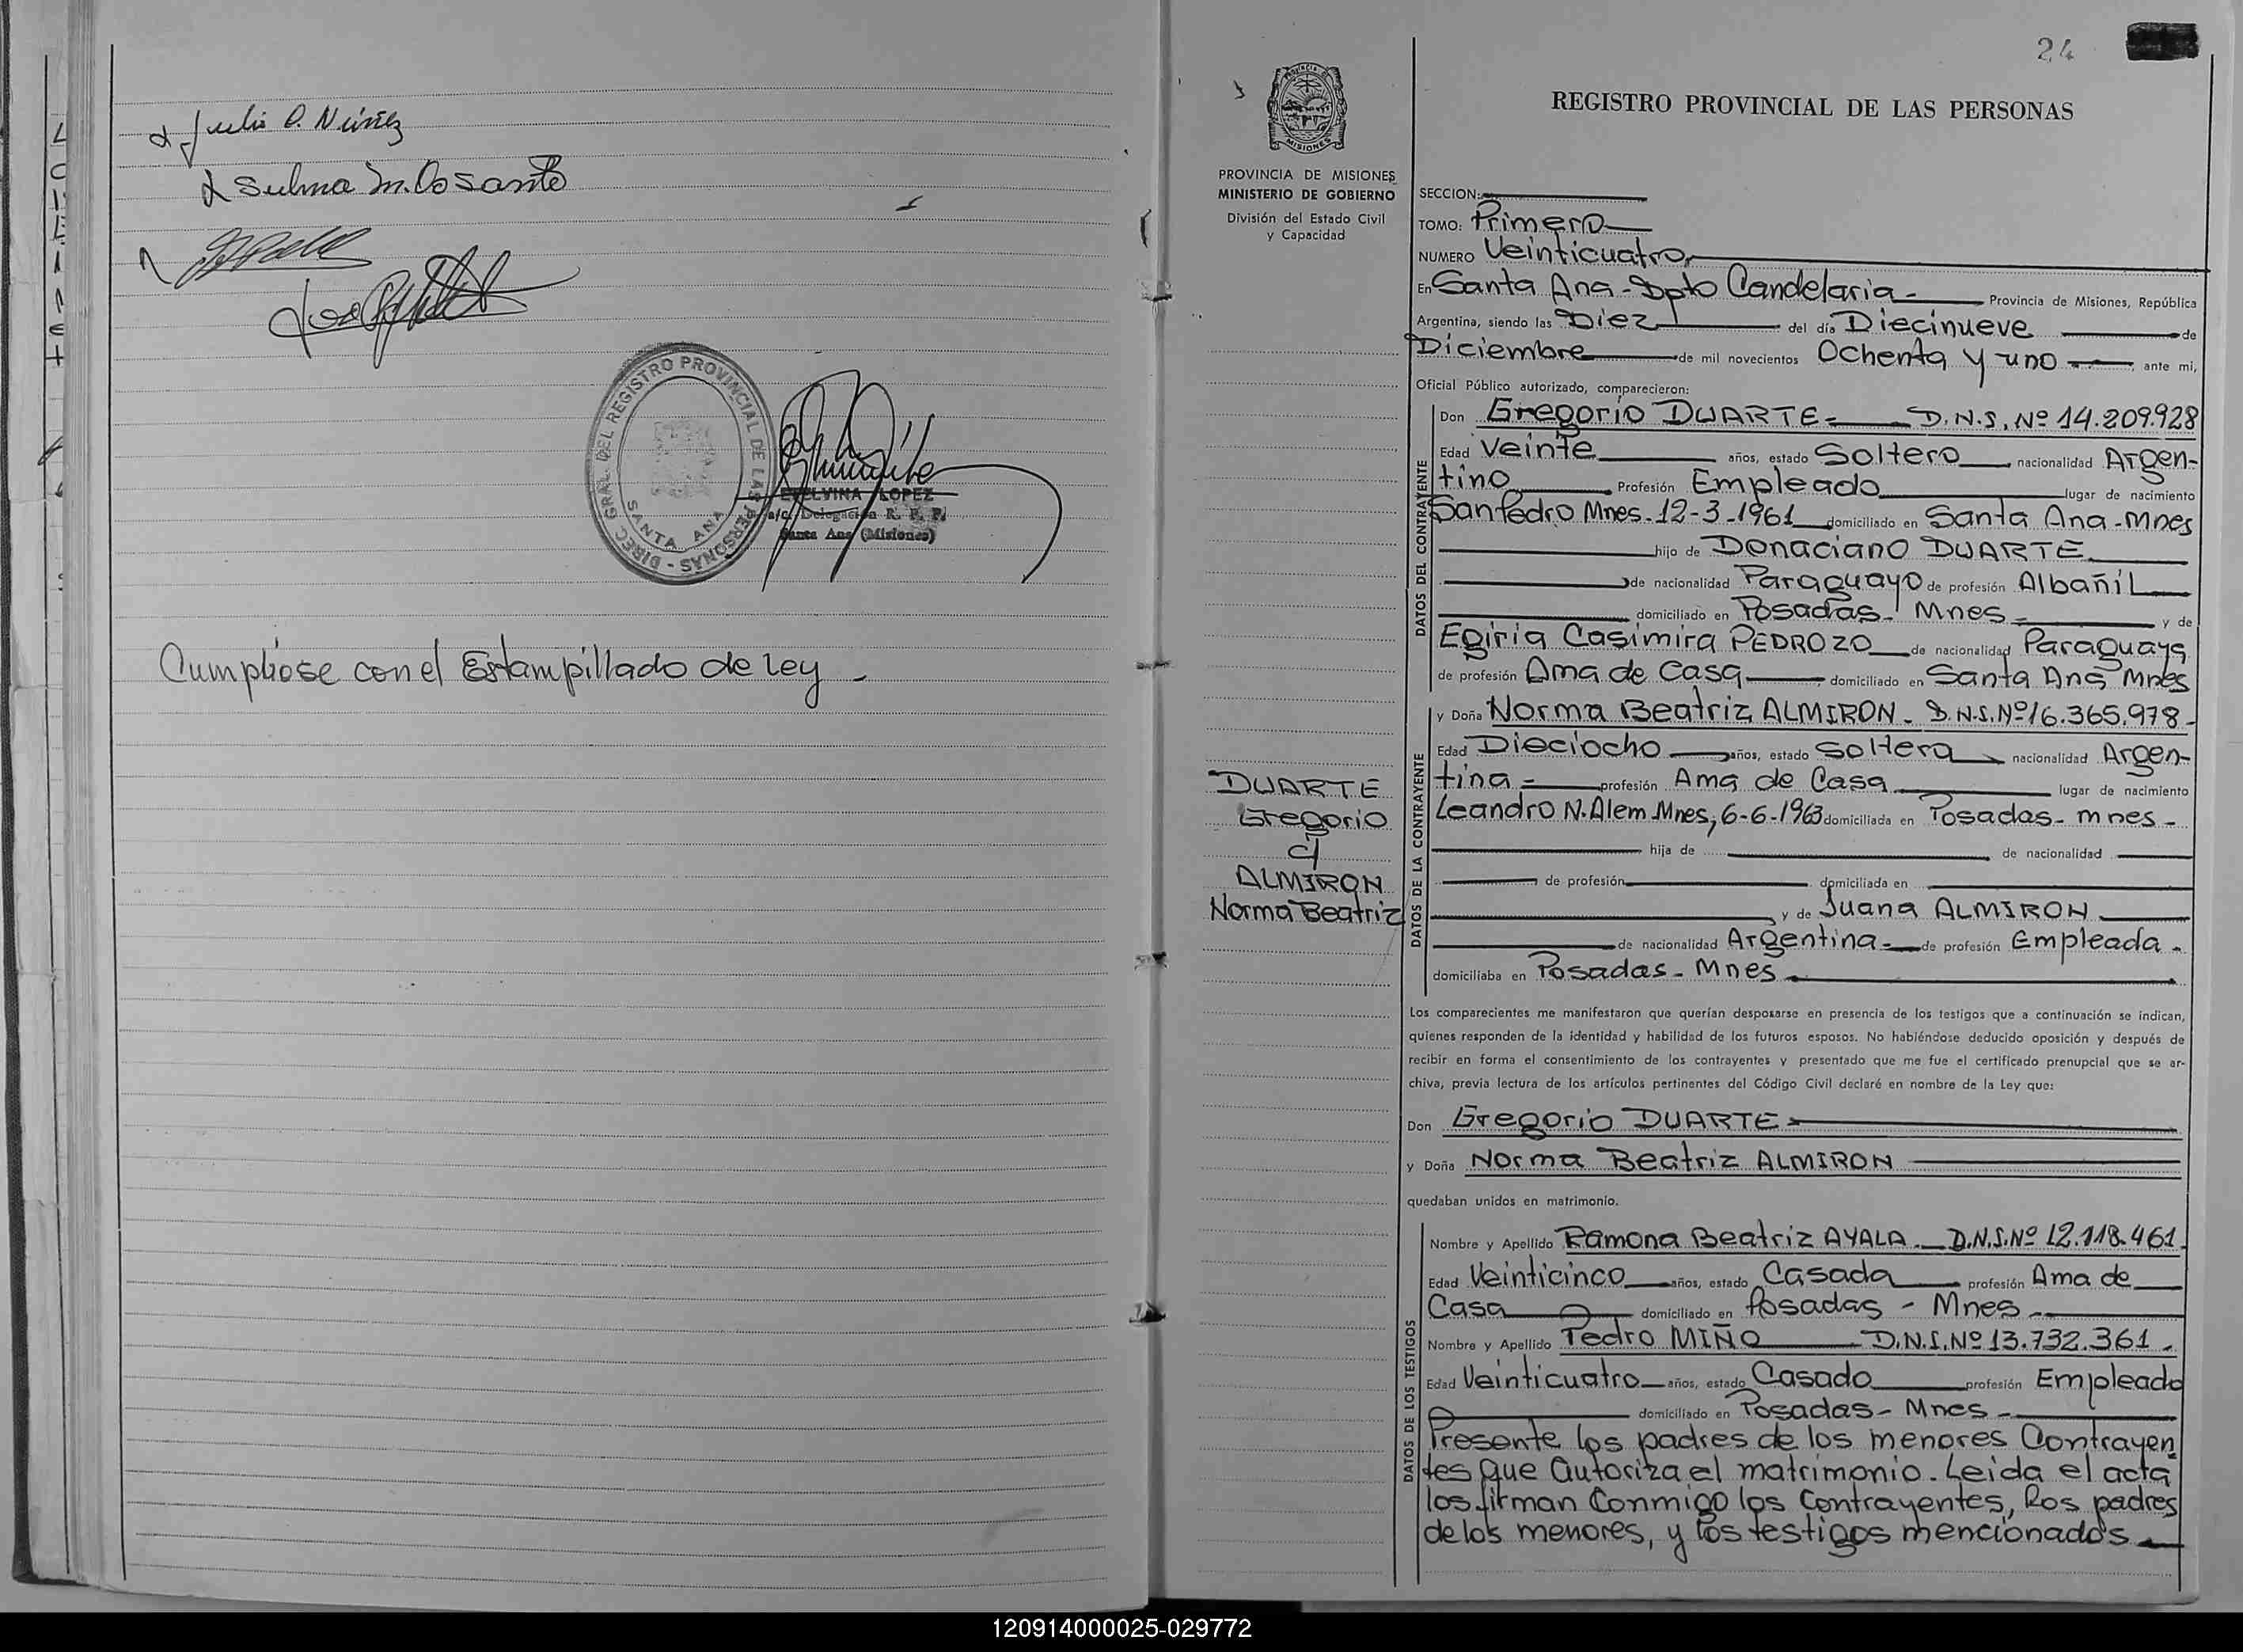 Julio O. Núñez
Sulma M. Do Santo
DIREC. GRAL. DEL REGISTRO PROVINCIAL DE LAS PERSONAS -
SANTA ANA
ETELVINA LOPEZ
a/c. Delegación R. P. P.
Santa Ana (Misiones)
Cumplióse con el Estampillado de Ley -
24
PROVINCIA DE MISIONES
MINISTERIO DE GOBIERNO
División del Estado Civil
y Capacidad
DUARTE
Gregorio
c/
ALMIRON
Norma Beatriz
REGISTRO PROVINCIAL DE LAS PERSONAS
SECCION:
TOMO: Primero
NUMERO Veinticuatro
En Santa Ana - Dpto Candelaria - Provincia de Misiones, República
Argentina, siendo las Diez del día Diecinueve de
Diciembre de mil novecientos Ochenta y uno ante mi,
Oficial Público autorizado, comparecieron:
DATOS DEL CONTRAYENTE
Don Gregorio DUARTE - D.N.I. Nº 14.209.928
Edad Veinte años, estado Soltero nacionalidad Argen-
tino Profesión Empleado lugar de nacimiento
San Pedro Mnes. 12-3-1961 domiciliado en Santa Ana - Mnes
hijo de Donaciano DUARTE
de nacionalidad Paraguayo de profesión Albañil
domiciliado en Posadas - Mnes y de
Egiria Casimira PEDROZO de nacionalidad Paraguaya
de profesión Ama de Casa domiciliado en Santa Ana Mnes
DATOS DE LA CONTRAYENTE
y Doña Norma Beatriz ALMIRON - D.N.I. Nº 16.365.978 -
Edad Dieciocho años, estado Soltera nacionalidad Argen-
tina - profesión Ama de Casa lugar de nacimiento
Leandro N. Alem Mnes, 6-6-1963 domiciliada en Posadas - Mnes -
hija de de nacionalidad
de profesión domiciliada en
y de Juana ALMIRON
de nacionalidad Argentina - de profesión Empleada -
domiciliaba en Posadas - Mnes
Los comparecientes me manifestaron que querían desposarse en presencia de los testigos que a continuación se indican,
quienes responden de la identidad y habilidad de los futuros esposos. No habiéndose deducido oposición y después de
recibir en forma el consentimiento de los contrayentes y presentado que me fue el certificado prenupcial que se ar-
chiva, previa lectura de los artículos pertinentes del Código Civil declaré en nombre de la Ley que:
Don Gregorio DUARTE
y Doña Norma Beatriz ALMIRON
quedaban unidos en matrimonio.
DATOS DE LOS TESTIGOS
Nombre y Apellido Ramona Beatriz AYALA - D.N.I. Nº 12.118.461
Edad Veinticinco años, estado Casada profesión Ama de
Casa domiciliado en Posadas - Mnes
Nombre y Apellido Pedro MIÑO D.N.I. Nº 13.732.361 -
Edad Veinticuatro años, estado Casado profesión Empleado
domiciliado en Posadas - Mnes -
Presente los padres de los menores Contrayen
tes que autoriza el matrimonio. Leida el acta
los firman Conmigo los Contrayentes, los padres
de los menores, y los testigos mencionados
120914000025-029772